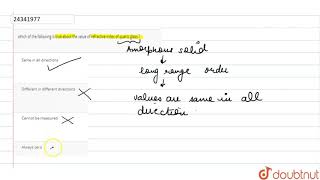 24341977
which of the following is true about the value of refractive index of quartz glass?
Same in all directions
Different in different directions
Cannot be measured
Always zero
Amorphous solid
long range order
values are same in all
direction
doubtnut